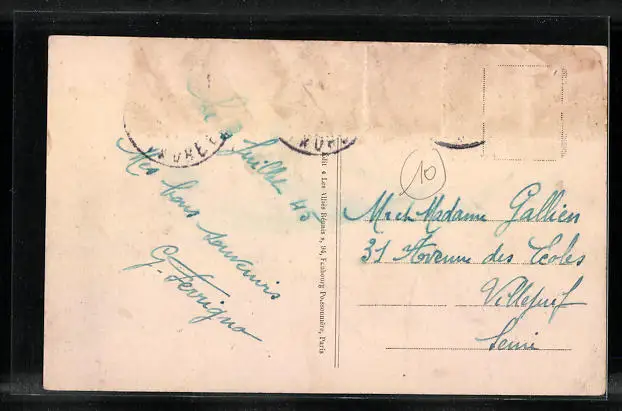 Le 3 Juillet 45
Mes bons souvenirs
G. Ferrigno
Edit « Les Alliés Réunis », 94, Faubourg Poissonnière, Paris
10
M et Madame Gallien
31 Avenue des Ecoles
Villejuif
Seine